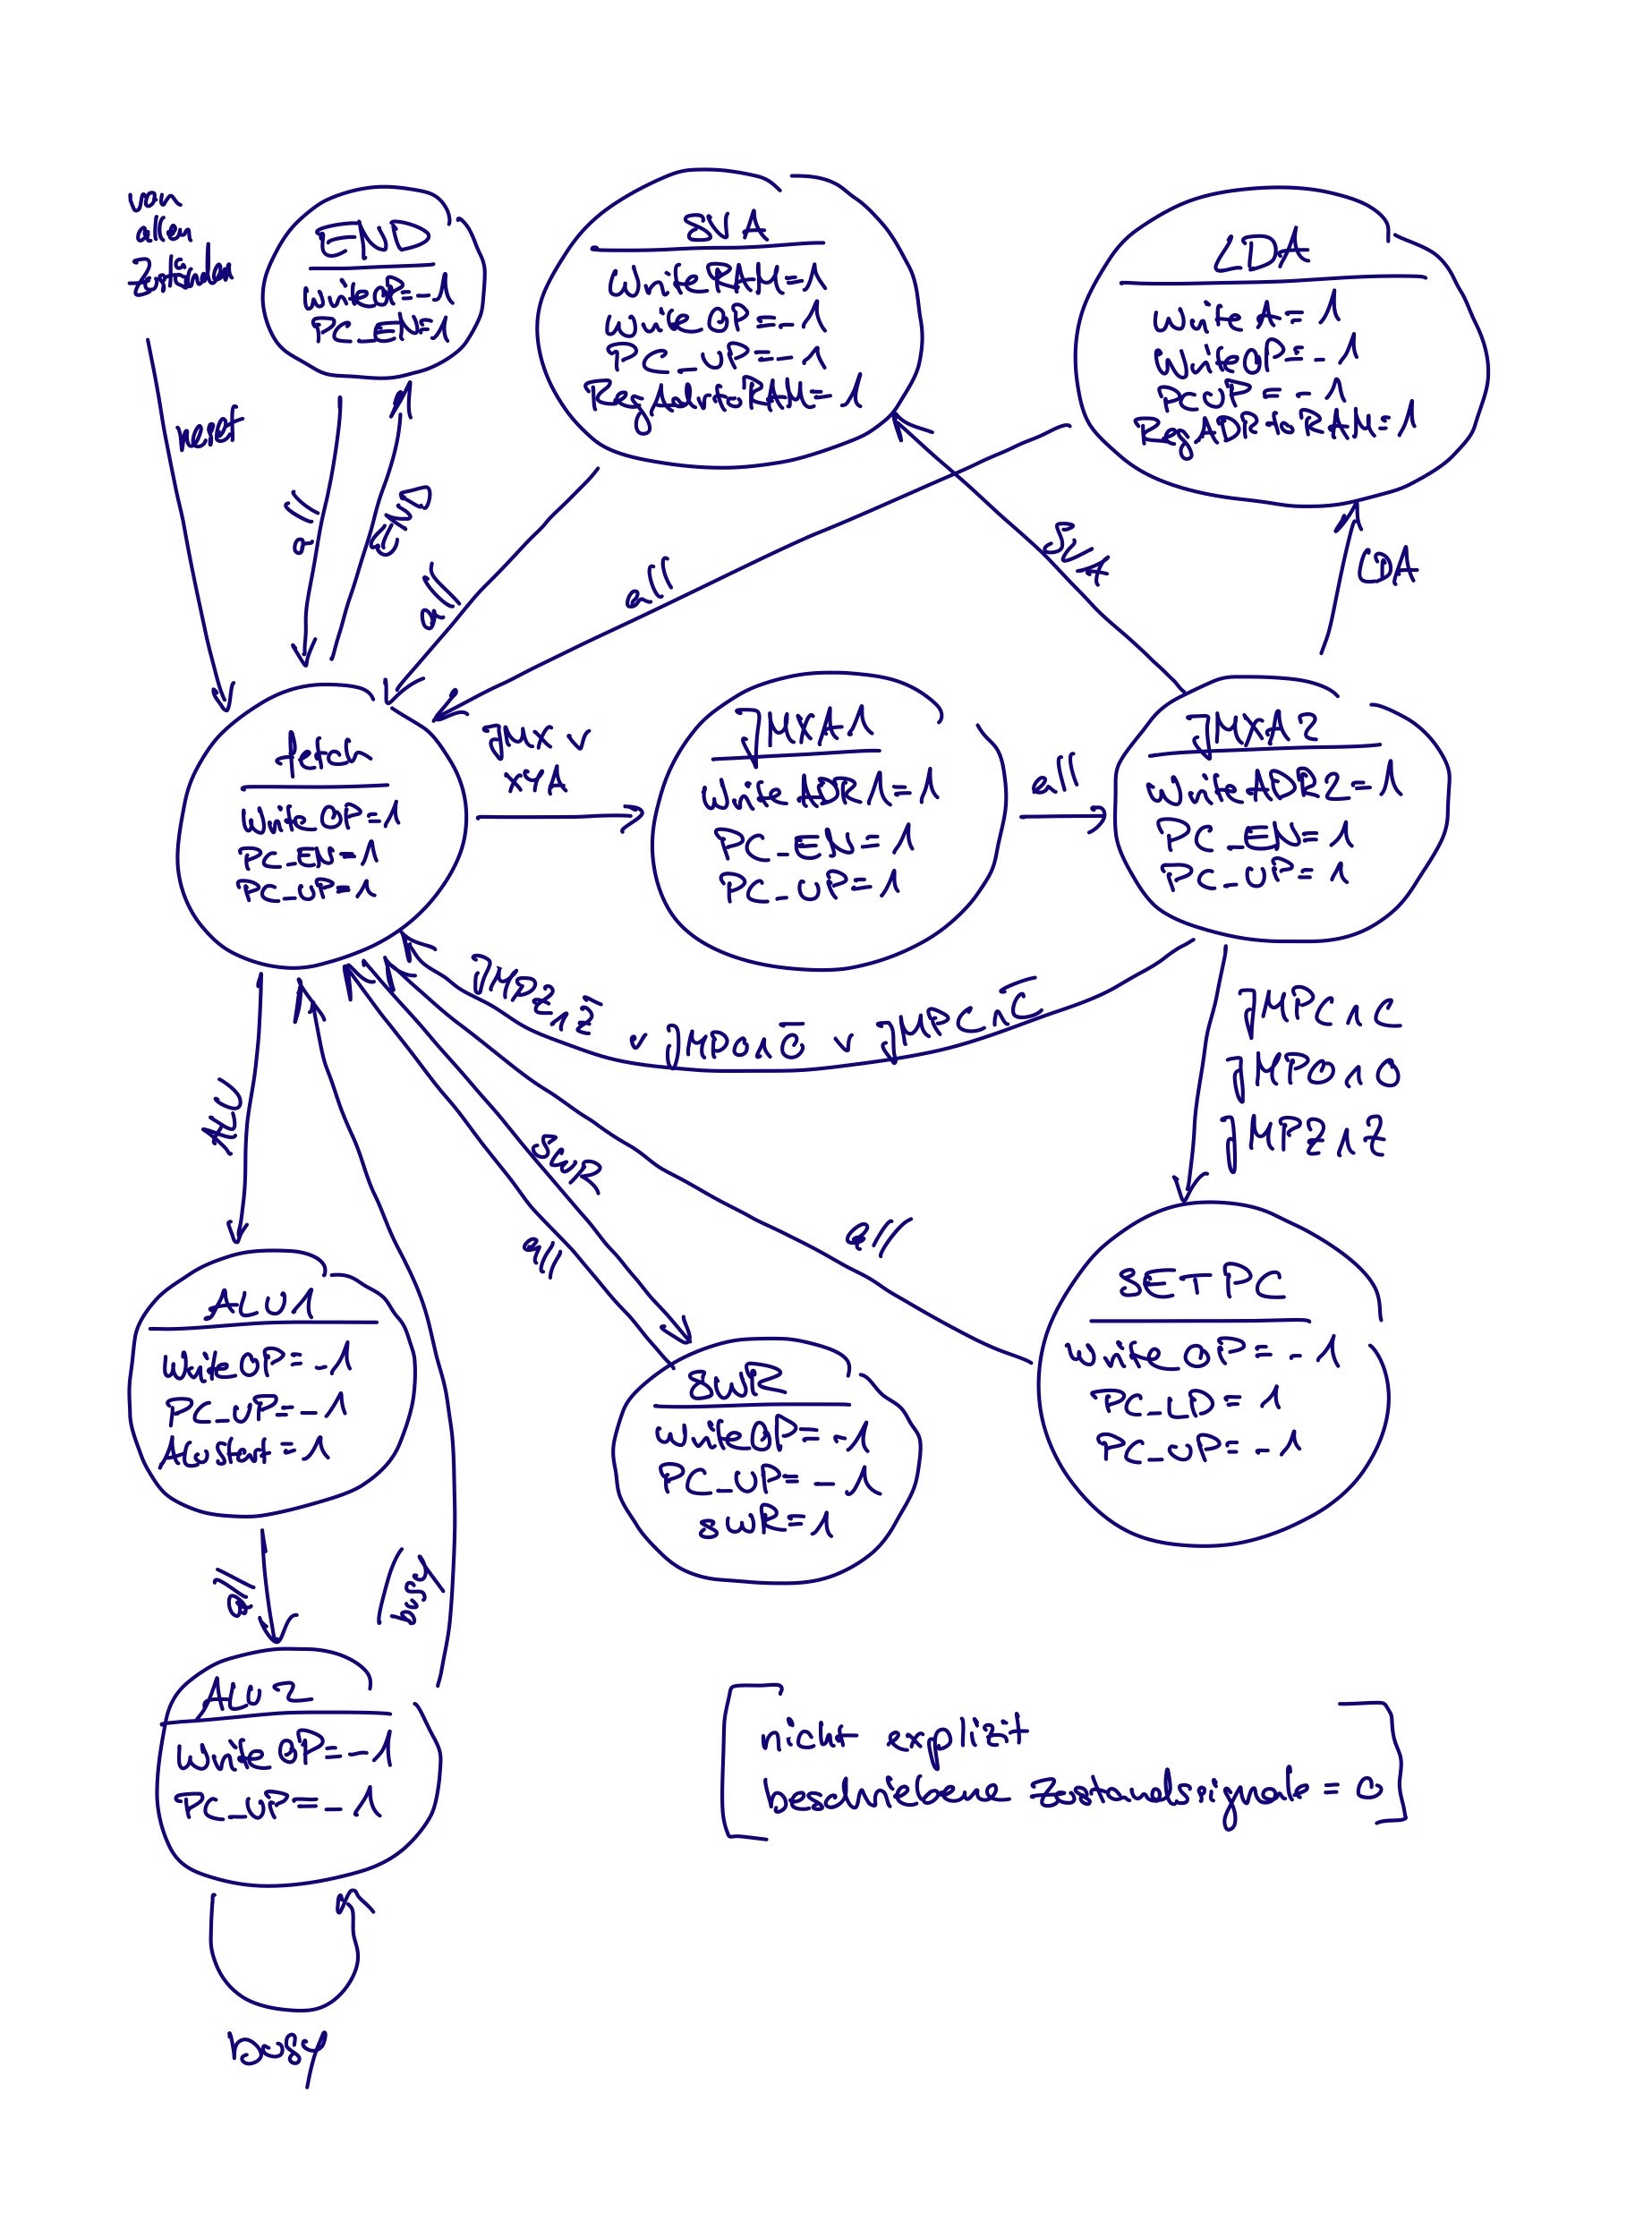 von
allen
Zuständen
reset
END
WriteOP=-1
PC_EN=1
all
END
SVA
WriteRAM=1
WriteOP=-1
PC_UP=-1
RegAdrtoRAM=1
all
LDA
WriteA=1
WriteOP=-1
PCUP=-1
RegADRtoRAM=1
all
SVA
LDA
fetch
WriteOP=1
PC_EN=1
PC_UP=1
JMX ∨
XYA
JMXA1
WriteADR1=1
PC_EN=1
PC_UP=1
all
JMXA2
WriteADR2=1
PC_EN=1
PC_UP=1
JMPZ∧Z̅ ∨ JMPO∧O̅ ∨ JMPC∧C̅
JMPC∧C
JMPO∧O
JMPZ∧Z
ALU
SWR
all
all
ALU1
WriteOP=-1
PC_UP=-1
Alustart=1
SWR
WriteOP=-1
PC_UP=-1
SWR=1
SETPC
WriteOP=-1
PC_LD=1
PC_UP=-1
all
b̅u̅s̅y̅
ALU2
WriteOP=-1
PC_UP=-1
busy
nicht explizit
beschriebene Zustandssignale = 0